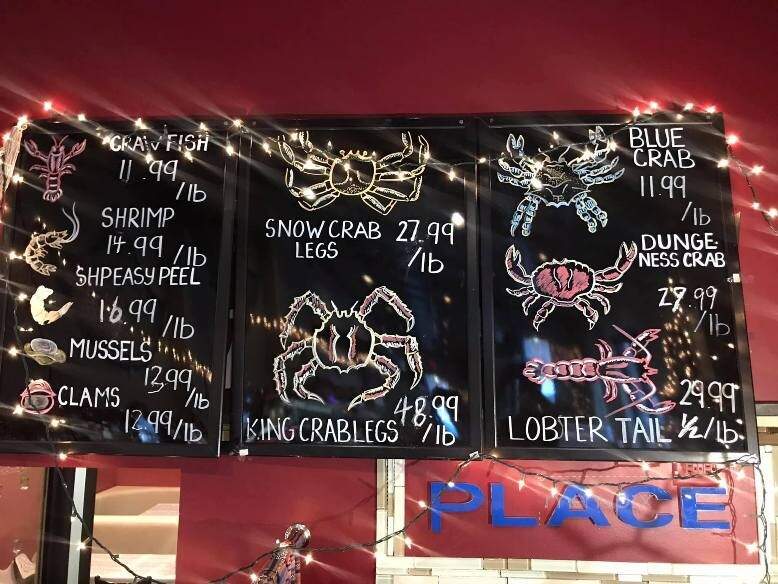 CRAWFISH
11.99
/lb
SHRIMP
14.99 /lb
SHPEASYPEEL
16.99
/lb
MUSSELS
13.99
/lb
CLAMS
12.99/lb
SNOW CRAB 27.99
LEGS /lb
48.99
KING CRABLEGS /lb
BLUE
CRAB
11.99
/lb
DUNGE-
NESS CRAB
/lb
29.99
LOBTER TAIL ½/lb
PLACE